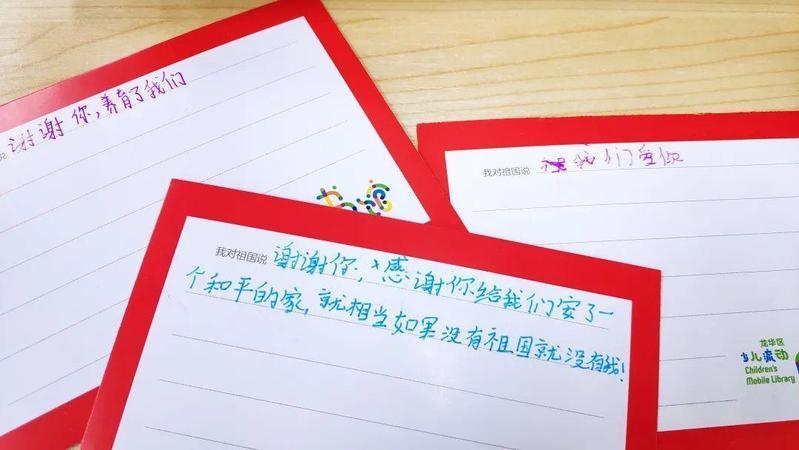 谢谢你,养育了我们
说
我对祖国说 我们爱你
我对祖国说 谢谢你,感谢你给我们安了一
个和平的家,就相当如果没有祖国就没有我!
龙华区
少儿流动
Children's
Mobile Library